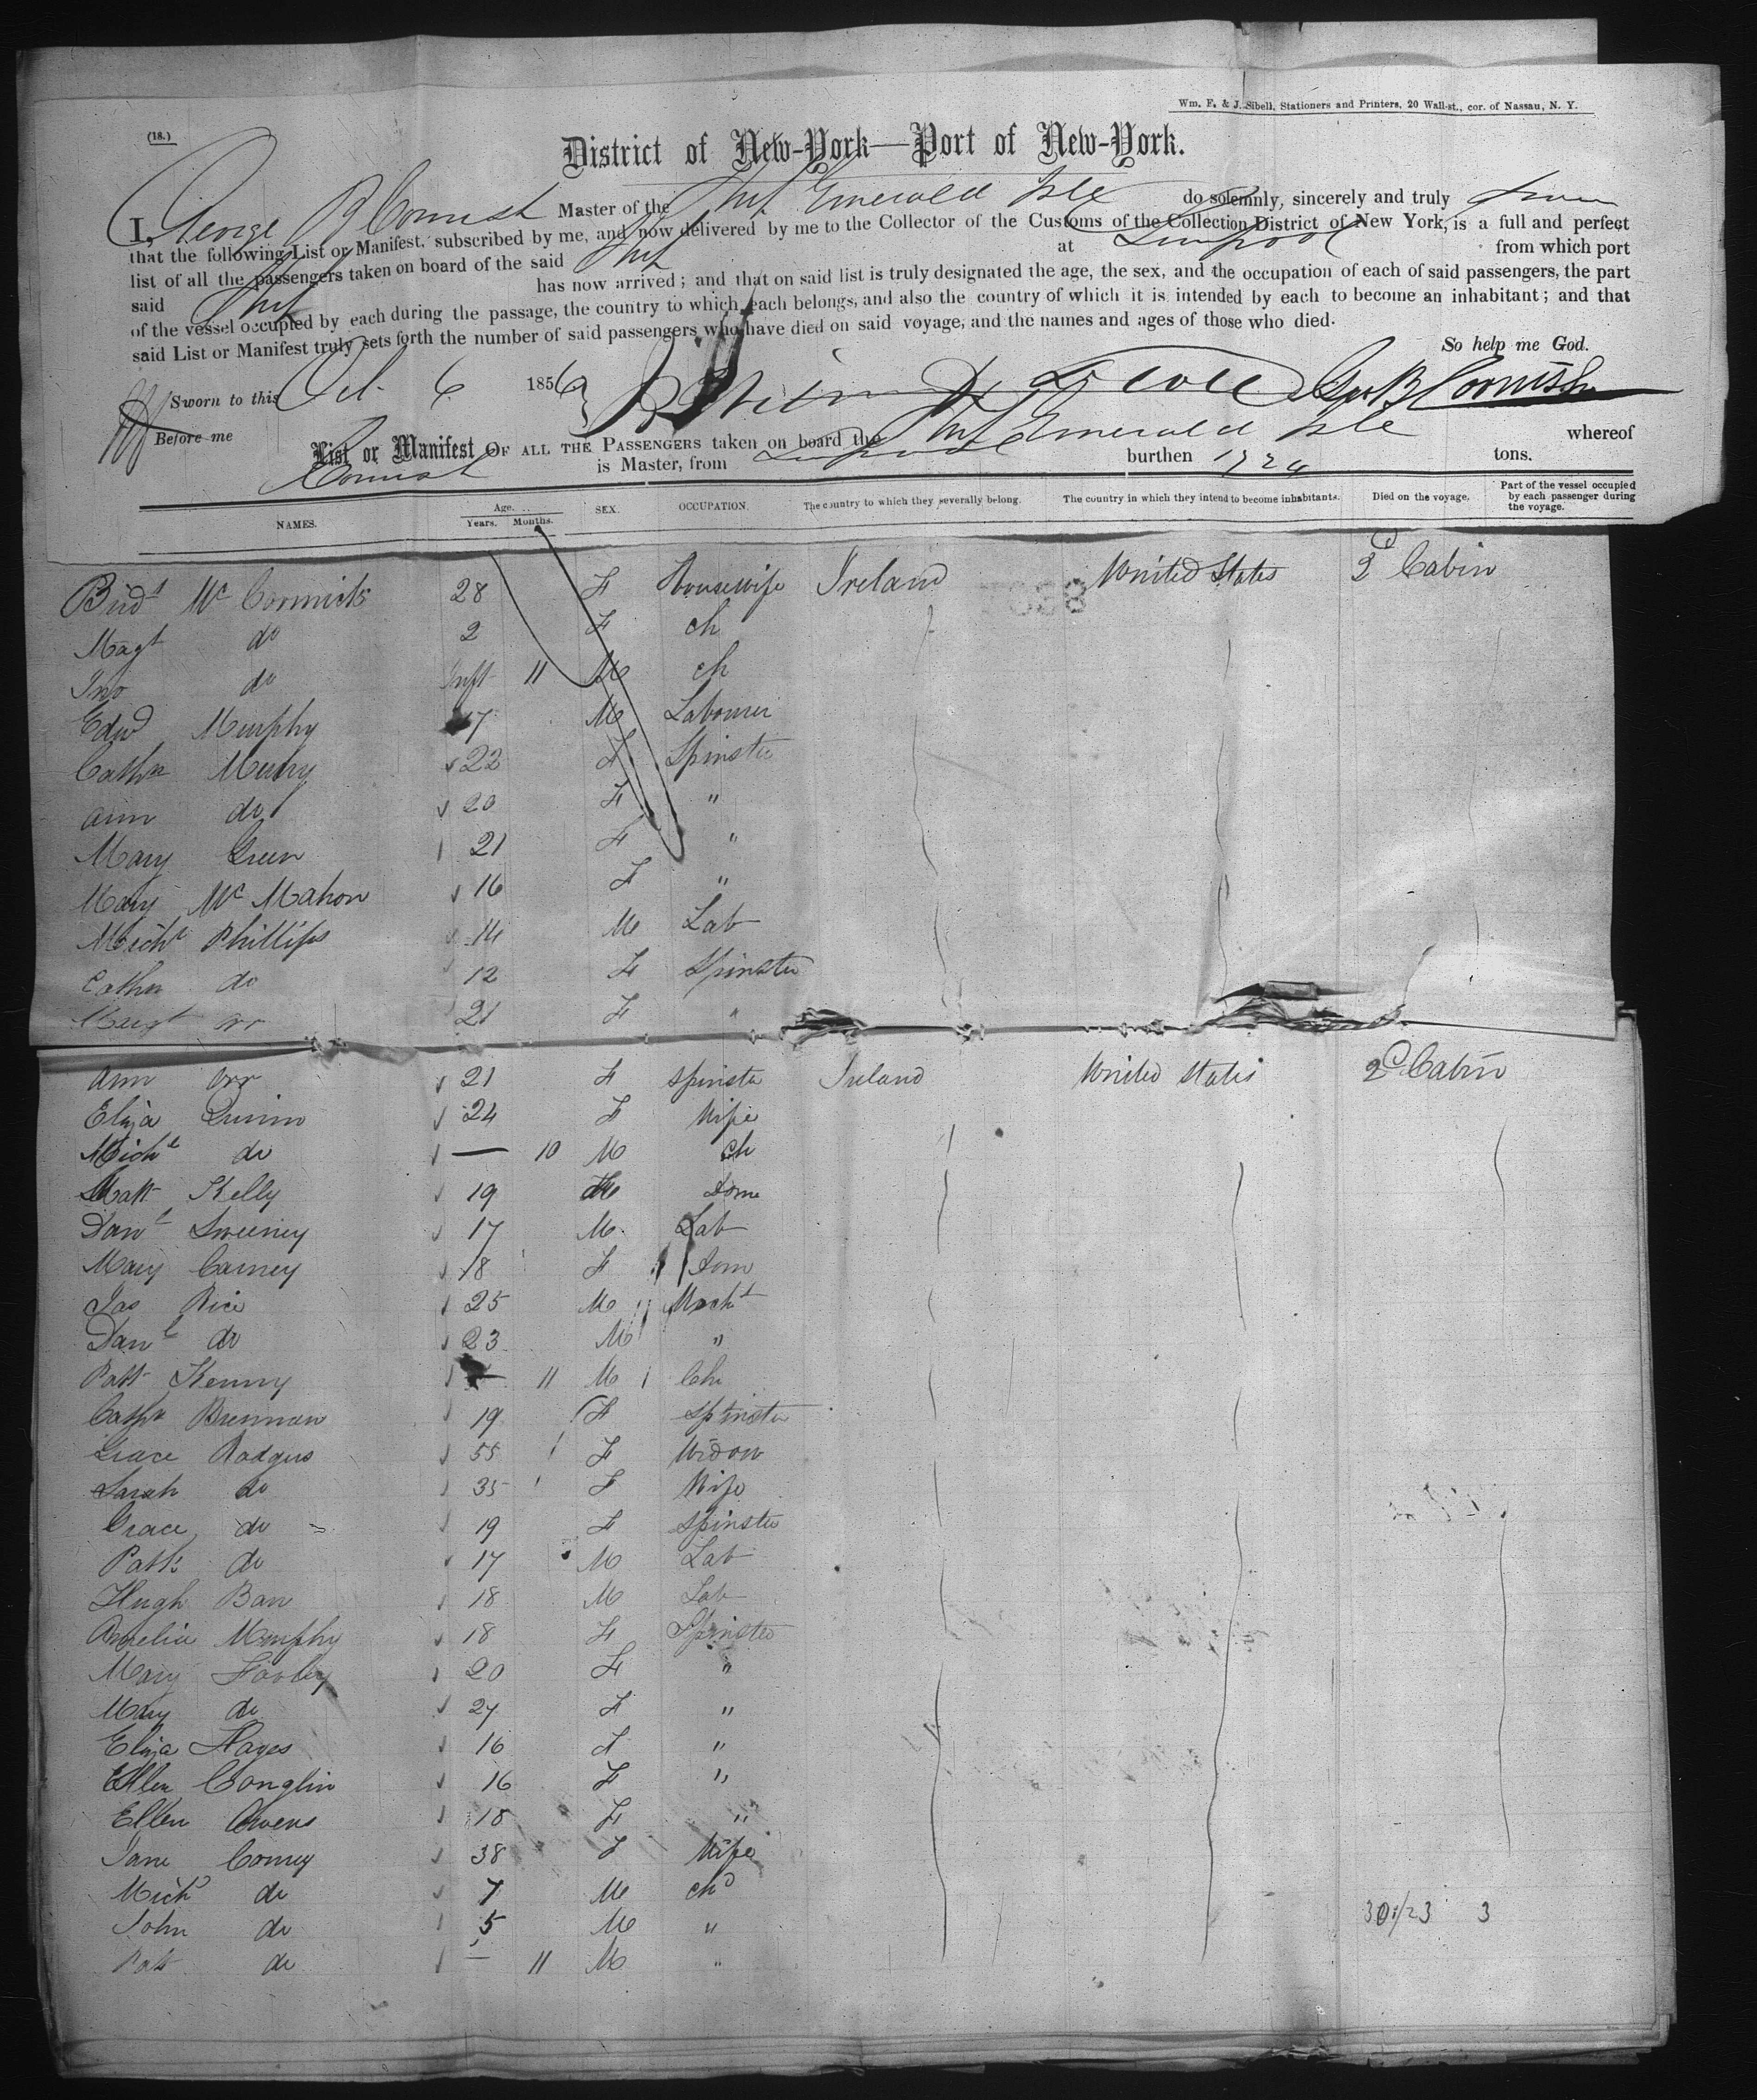 Wm. F. & J. Sibell, Stationers and Printers, 20 Wall-st., cor. of Nassau, N. Y.
(18.)
District of New-York—Port of New-York.
I, George B Cornish Master of the Ship Emerald Isle do solemnly, sincerely and truly swear
that the following List or Manifest, subscribed by me, and now delivered by me to the Collector of the Customs of the Collection District of New York, is a full and perfect
list of all the passengers taken on board of the said Ship at Liverpool from which port
said Ship has now arrived; and that on said list is truly designated the age, the sex, and the occupation of each of said passengers, the part
of the vessel occupied by each during the passage, the country to which each belongs, and also the country of which it is intended by each to become an inhabitant; and that
said List or Manifest truly sets forth the number of said passengers who have died on said voyage, and the names and ages of those who died.
So help me God.
Sworn to this Oct 6 1856 Geo B Cornish
Before me
List or Manifest OF ALL THE PASSENGERS taken on board the Ship Emerald Isle whereof
Cornish is Master, from Liverpool burthen 1724 tons.
NAMES. Age. Years. Months. SEX. OCCUPATION. The country to which they severally belong. The country in which they intend to become inhabitants. Died on the voyage. Part of the vessel occupied by each passenger during the voyage.
Bridt McCormick 28 F Housewife Ireland United States 2d Cabin
Magt do 2 F ch
Jno do Inft 11 M ch
Edwd Murphy 17 M Labourer
Cathn 22 F Spinster
Ann do 20 F "
Mary Green 21 F "
Mary McMahon 16 F "
Michl Phillips 14 M Lab
Cathn do 12 F Spinster
Margt Orr 21 F "
Ann Orr 21 F Spinster Ireland United States 2d Cabin
Eliza Quinn 24 F Wife
Michl do — 10 M ch
Matt Kelly 19 M Dom
Danl Sweeney 17 M Lab
Mary Carney 18 F Dom
Jas Rice 25 M Mecht
Danl do 23 M "
Patt Kenny — 11 M Ch
Cathn Brennan 19 F Spinster
Grace Rodgers 55 F Widow
Sarah do 35 F Wife
Grace do 19 F Spinster
Patk do 17 M Lab
Hugh Barr 18 M Lab
Amelia Murphy 18 F Spinster
Mary 20 F "
Mary do 27 F "
Eliza Hayes 16 F "
Ellen Conglin 16 F "
Ellen Owens 18 F "
Jane Comey 38 F Wife
Michl do 7 M chd
John do 5 M "
Patt do — 11 M "
301/23 3